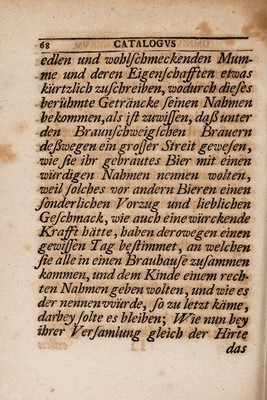 68 CATALOGVS
edlen und wohlſchmeckenden Mum-
me und deren Eigenſchafften etwas
kürtzlich zuſchreiben, wodurch dieſes
berühmte Geträncke ſeinen Nahmen
bekommen, als iſt zuwiſſen, daß unter
den Braunſchweigſchen Brauern
deßwegen ein groſſer Streit geweſen,
wie ſie ihr gebrautes Bier mit einen
würdigen Nahmen nennen wolten,
weil ſolches vor andern Bieren einen
ſönderlichen Vorzug und lieblichen
Geſchmack, wie auch eine würckende
Krafft hätte, haben derowegen einen
gewiſſen Tag beſtimmet, an welchen
ſie alle in einen Brauhauſe zuſammen
kommen, und dem Kinde einem rech-
ten Nahmen geben wolten, und wie es
der nennen vvürde, ſo zu letzt käme,
darbey ſolte es bleiben; Wie nun bey
ihrer Verſamlung gleich der Hirte
das